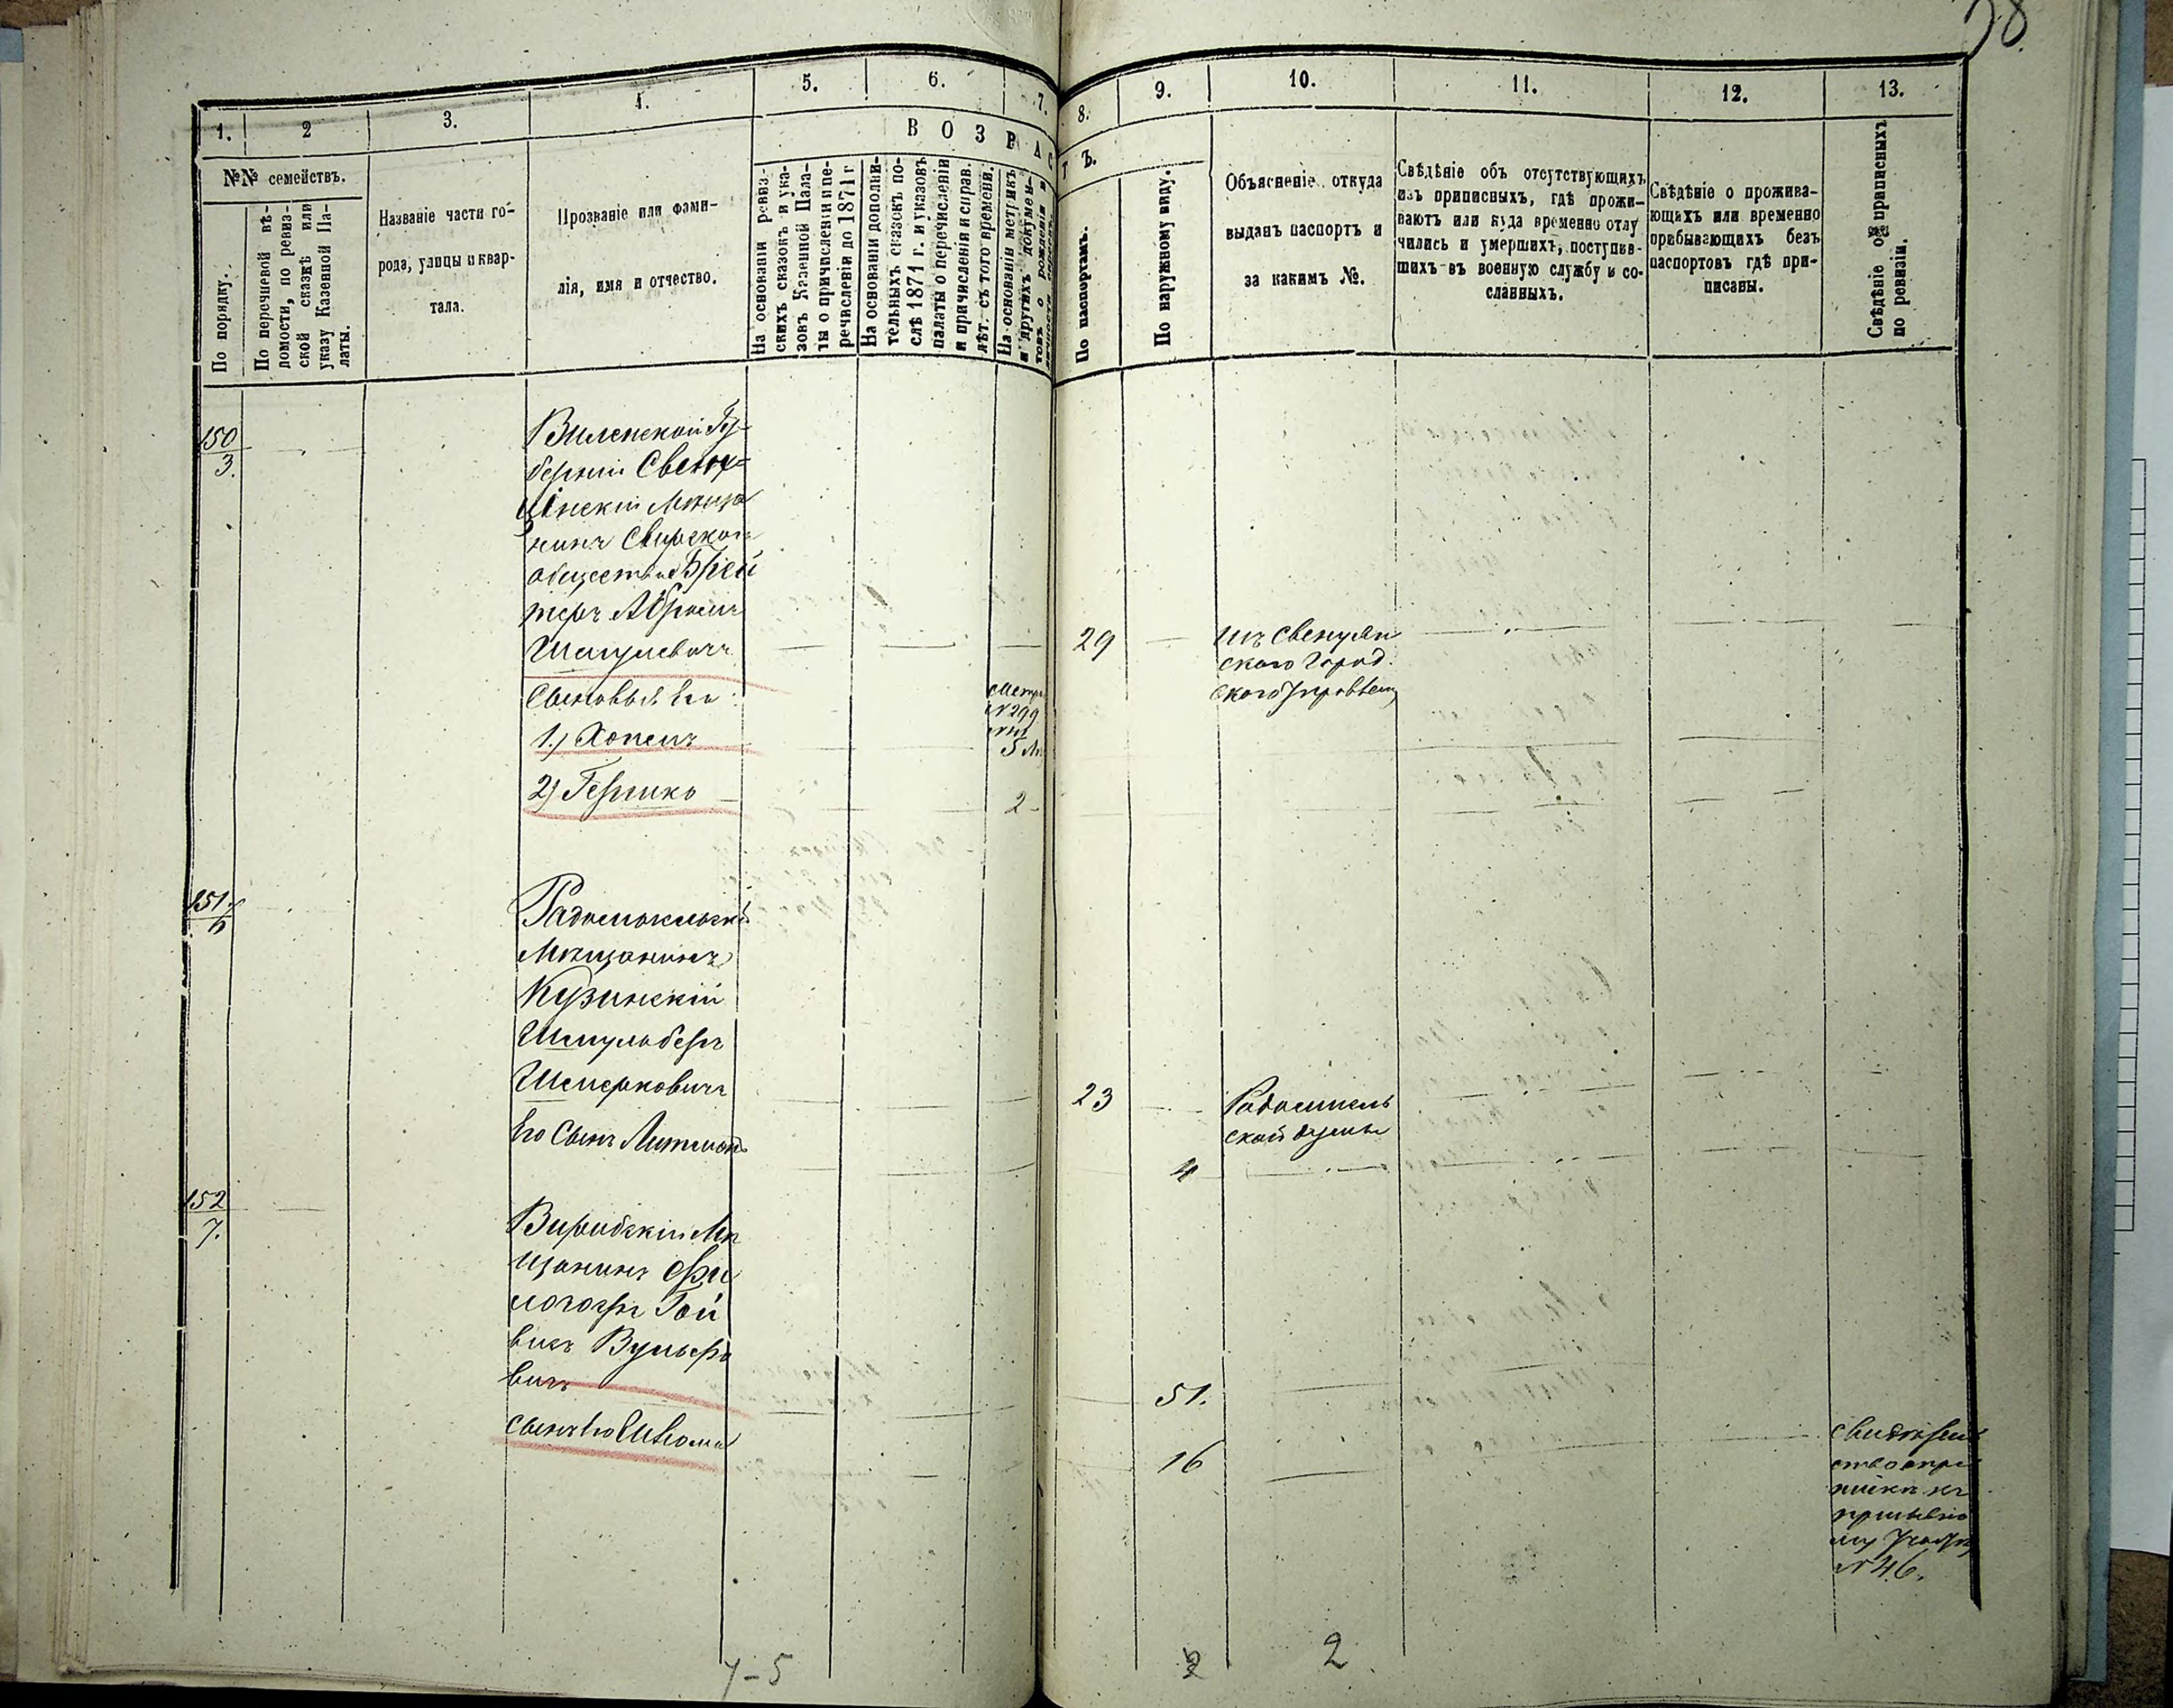 38.
1. 2 3. 4. 5. 6. 7. 8. 9. 10. 11. 12. 13.
№№ семействъ.
По порядку.
По перечневой вѣ-
домости, по ревиз-
ской сказкѣ или
указу Казенной Па-
латы.
Названіе части го-
рода, улицы и квар-
тала.
Прозваніе или фами-
лія, имя и отчество.
ВОЗРАСТЪ.
На основаніи ревиз-
скихъ сказокъ и ука-
зовъ Казенной Пала-
ты о причисленіи и пе-
речисленіи до 1871 г
На основаніи дополни-
тельныхъ сказокъ по-
слѣ 1871 г. и указовъ
палаты о перечисленіи
и причисленіи и справ.
лѣт. съ того времени.
На основаніи метрикъ
и другихъ докумен-
товъ о рожденіи и
По паспортамъ.
По наружному виду.
Объясненіе откуда
выданъ паспортъ и
за какимъ №.
Свѣдѣніе объ отсутствующихъ
изъ приписныхъ, гдѣ прожи-
ваютъ или куда временно отлу
чились и умершихъ, поступив-
шихъ въ военную службу и со-
сланныхъ.
Свѣдѣніе о прожива-
ющихъ или временно
прибывающихъ безъ
паспортовъ гдѣ при-
писаны.
Свѣдѣніе о приписныхъ
по ревизіи.
150
3.
Виленской Гу-
берніи Свенця-
Мѣща
нинъ Свирскаго
общества Брей
теръ Абрамъ
Шмулевичъ
29
изъ Свенцян
скаго Город.
скаго Управлен
Сыновья его:
1.) Хопелъ
Метр
№ 299
5 М
2) Гершко
2 -
151
Радомысльскій
Мѣщанинъ
Кузинскій
Шмульберъ
Шмерковичъ
23
Радомысль
ской думы
Его Сынъ Литманъ
4
152
7.
Мѣ
щанинъ Фи
Гой
Вульфо
вичъ
51.
Сынъ его
16
свидѣтель
ство о при
пискѣ къ
призывно
му Участку
№ 46.
4-5
2
2